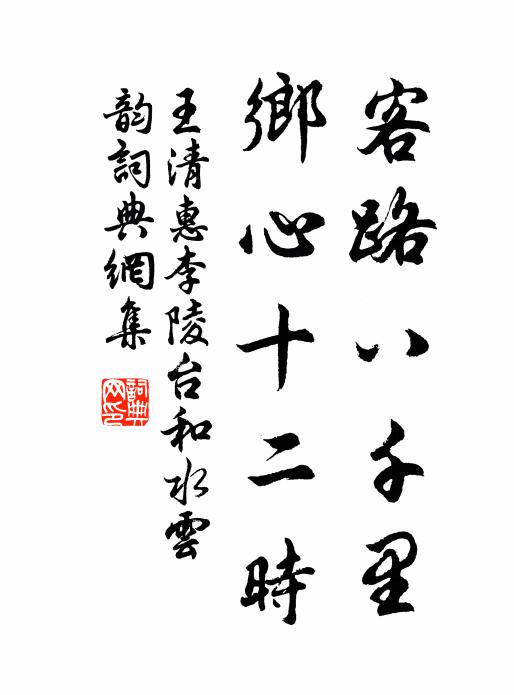 客路八千里
鄉心十二時
王清惠李陵台和水雲
韵詞典網集
詞典
网印